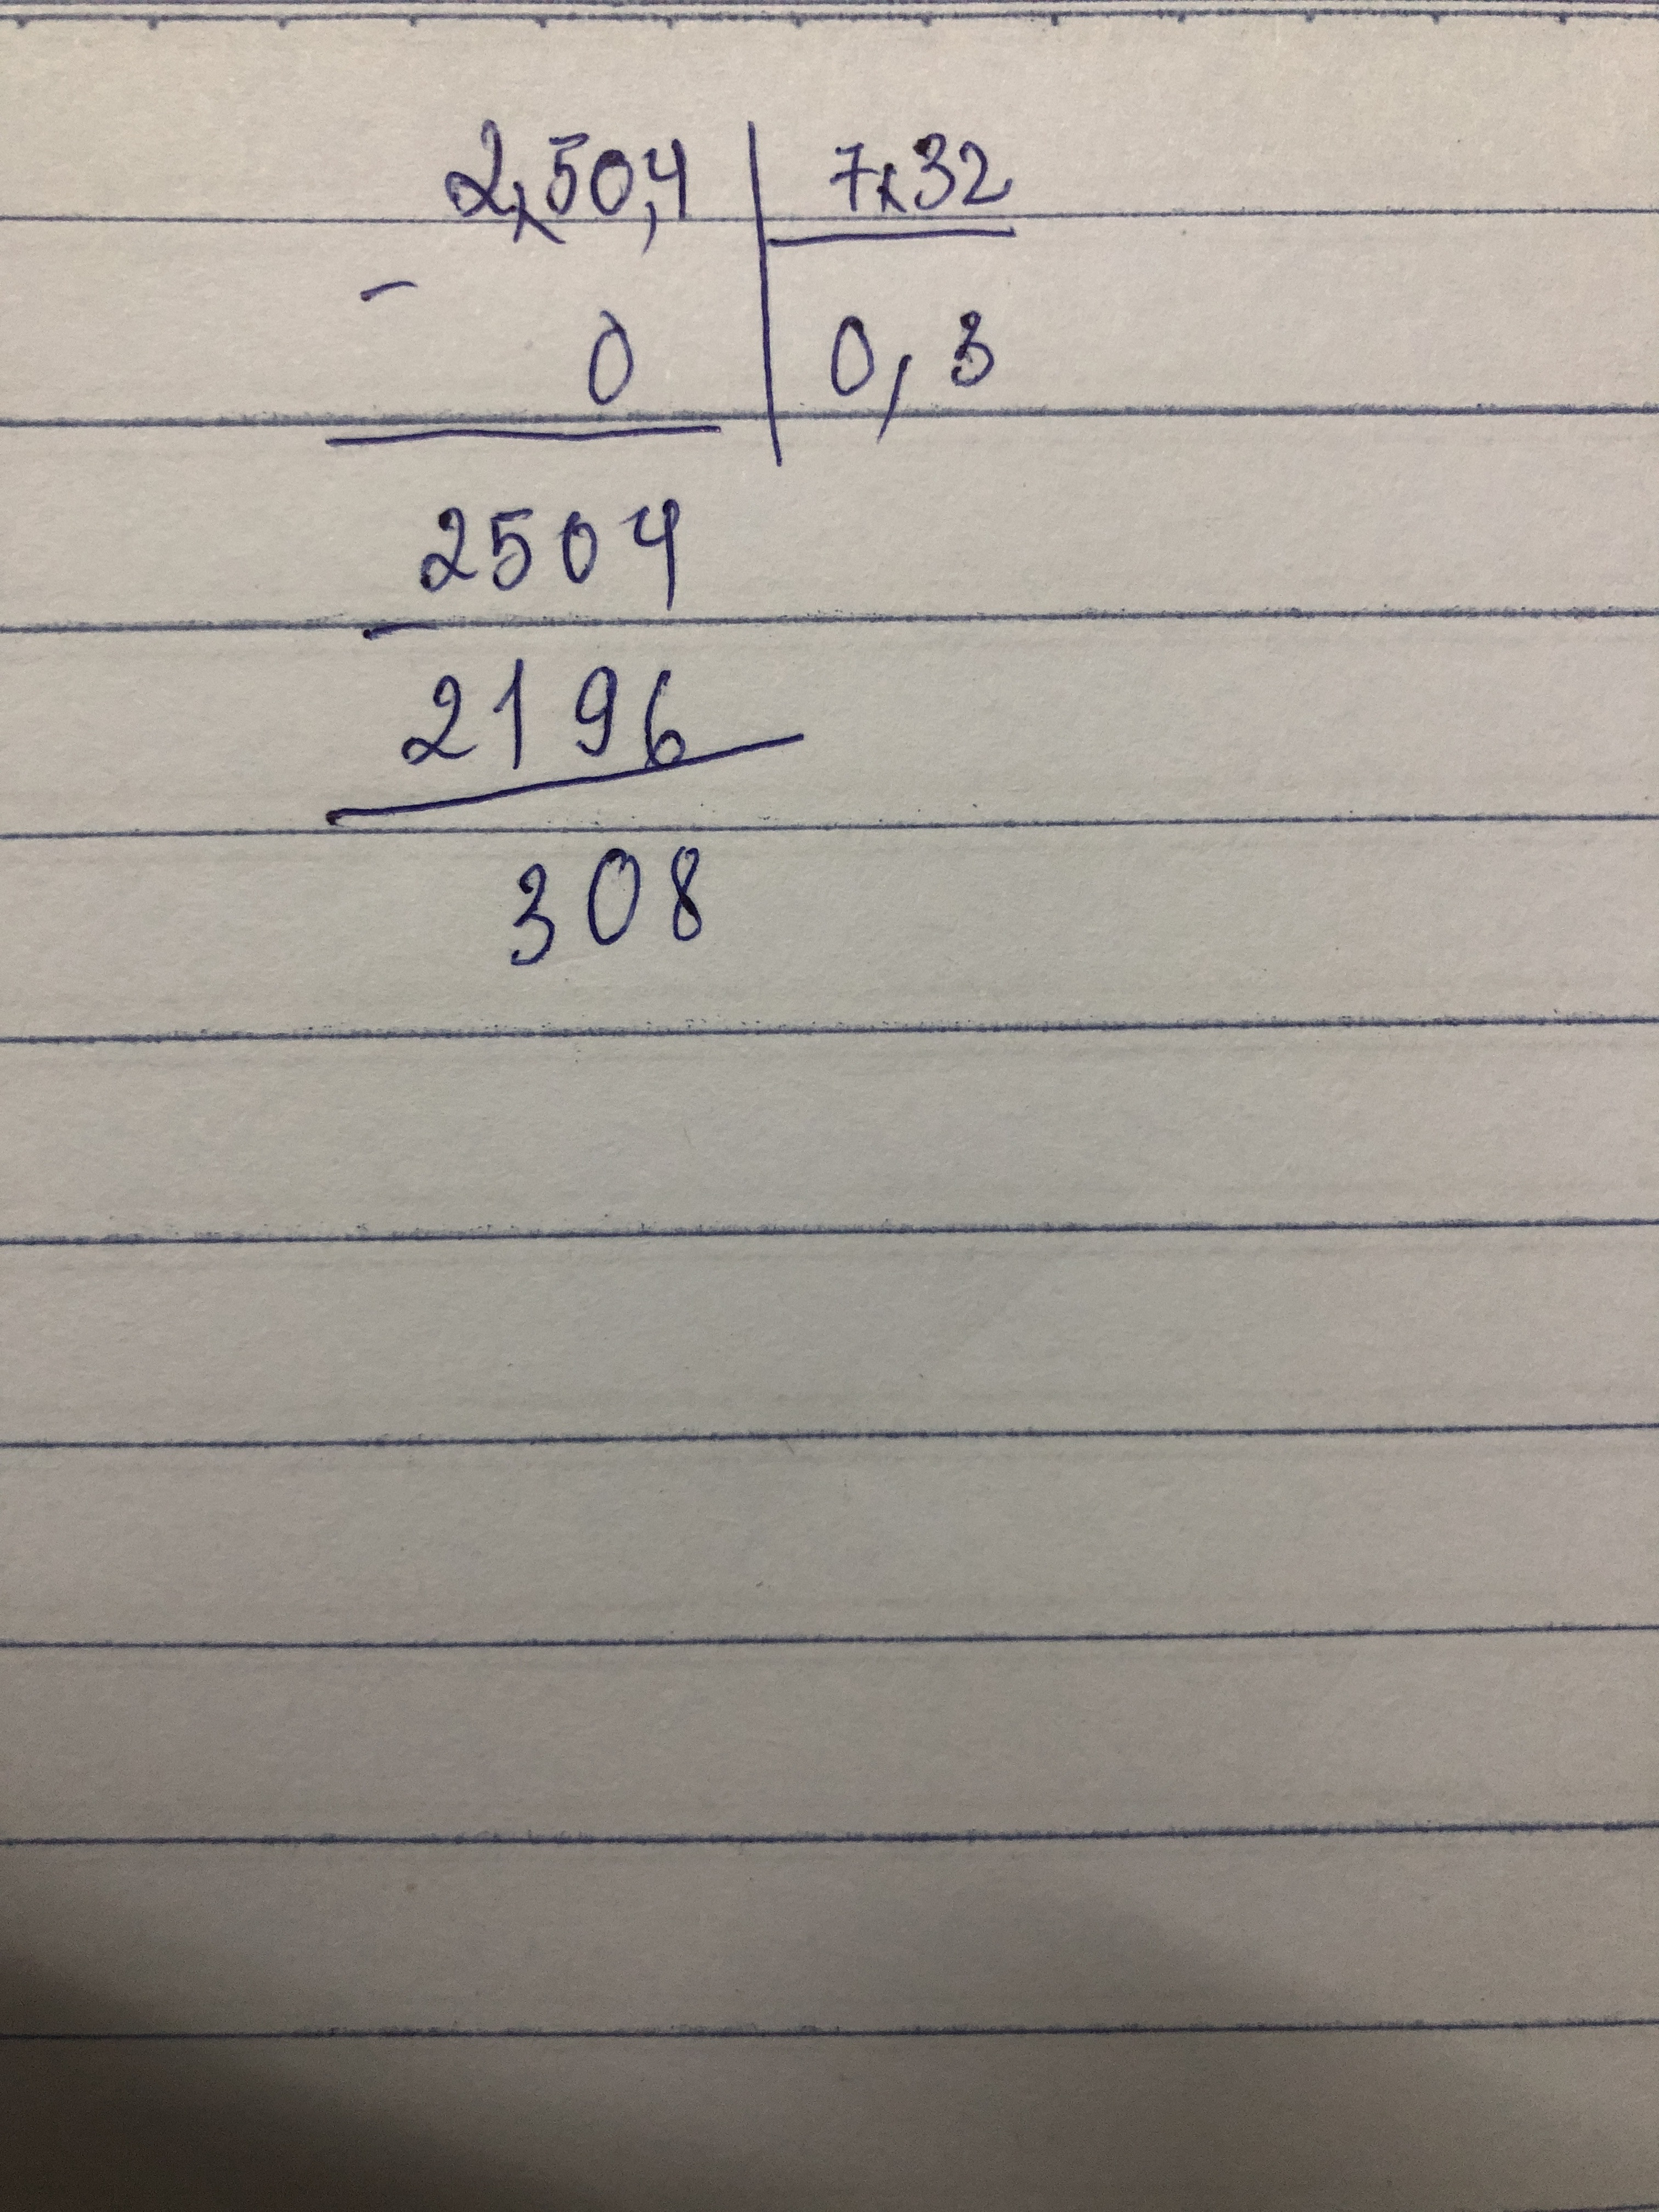 2,50,4 | 7,32
- 0 | 0,3
2504
-
2196
308